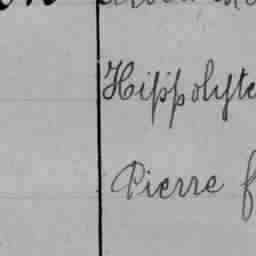 Hippolyte
Pierre f